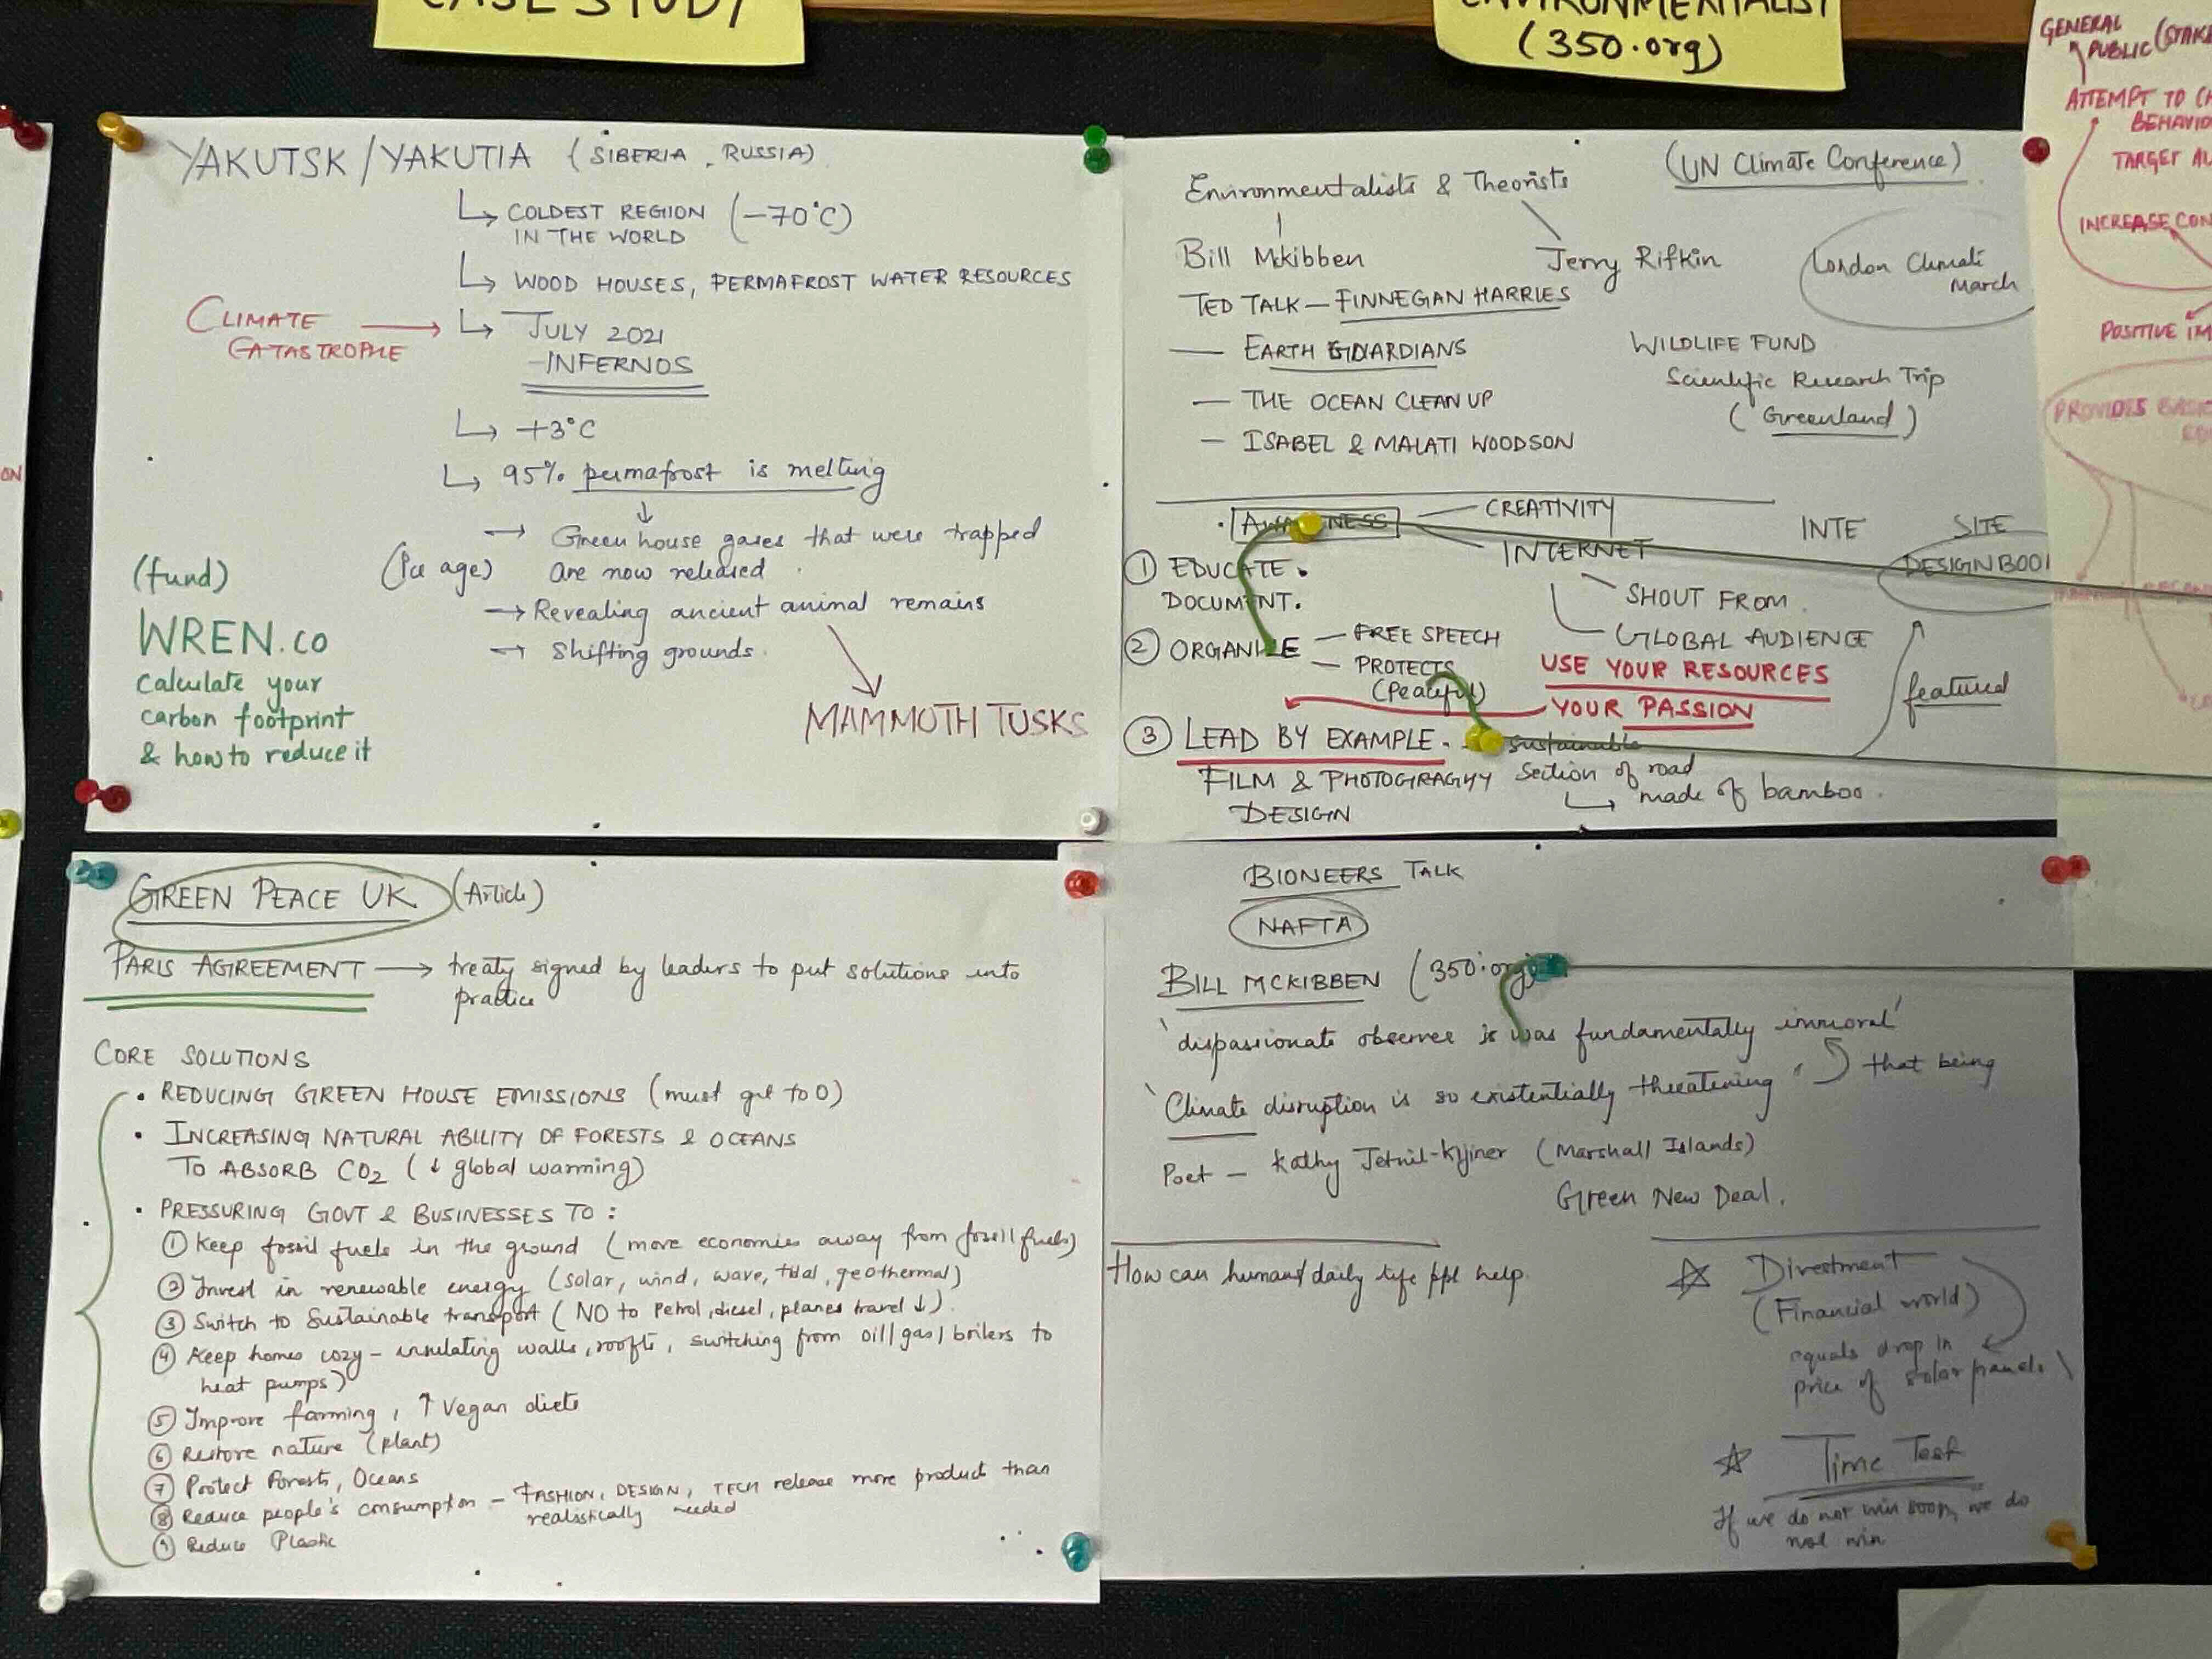 CASE STUDY
ENVIRONMENTALIST
(350.org)
YAKUTSK/YAKUTIA (SIBERIA, RUSSIA)
↳ COLDEST REGION (-70°C)
IN THE WORLD
↳ WOOD HOUSES, PERMAFROST WATER RESOURCES
CLIMATE CATASTROPHE → ↳ JULY 2021
-INFERNOS
↳ +3°C
↳ 95% permafrost is melting
↓
→ Green house gases that were trapped
(Ice age) are now released.
→ Revealing ancient animal remains
→ Shifting grounds.
MAMMOTH TUSKS
(fund)
WREN.co
Calculate your
carbon footprint
& how to reduce it
Environmentalists & Theorists
(UN Climate Conference)
Bill Mckibben
Jerry Rifkin
London Climate
March
TED TALK — FINNEGAN HARRIES
— EARTH GUARDIANS
— THE OCEAN CLEAN UP
— ISABEL & MALATI WOODSON
WILDLIFE FUND
Scientific Research Trip
(Greenland)
. AWARENESS — CREATIVITY
INTERNET
SHOUT FROM.
GLOBAL AUDIENCE
INTE SITE
DESIGN
① EDUCATE.
DOCUMENT.
② ORGANIZE — FREE SPEECH
— PROTECTS
(Peaceful)
USE YOUR RESOURCES
YOUR PASSION
featured
③ LEAD BY EXAMPLE. — sustainable
section of road
↳ made of bamboo.
FILM & PHOTOGRAGHY
DESIGN
GREEN PEACE UK (Article)
PARIS AGREEMENT → treaty signed by leaders to put solutions into
practice
CORE SOLUTIONS
• REDUCING GREEN HOUSE EMISSIONS (must get to 0)
• INCREASING NATURAL ABILITY OF FORESTS & OCEANS
TO ABSORB CO2 (↓ global warming)
• PRESSURING GOVT & BUSINESSES TO :
① Keep fossil fuels in the ground (move economies away from fossil fuels)
② Invest in renewable energy (solar, wind, wave, tidal, geothermal)
③ Switch to Sustainable transport (NO to Petrol, diesel, planes travel ↓).
④ Keep homes cozy - insulating walls, roofts, switching from oil/gas/boilers to
heat pumps)
⑤ Improve farming, ↑ Vegan diets
⑥ Restore nature (plant)
⑦ Protect Forests, Oceans
⑧ Reduce people's consumption - FASHION, DESIGN, TECH release more product than
realistically needed
⑨ Reduce Plastic
BIONEERS TALK
NAFTA
BILL MCKIBBEN (350.org)
'dispassionate observer is was fundamentally immoral'
'Climate disruption is so existentially threatening, that being
Poet — Kathy Jetnil-Kijiner (Marshall Islands)
Green New Deal.
How can humans/daily life ppl help.
☆ Divestment
(Financial world)
equals drop in
price of solar panels
☆ Time Test
If we do not win soon, we do
not win
GENERAL
PUBLIC
ATTEMPT TO
TARGET
INCREASE
POSITIVE
PROVIDES